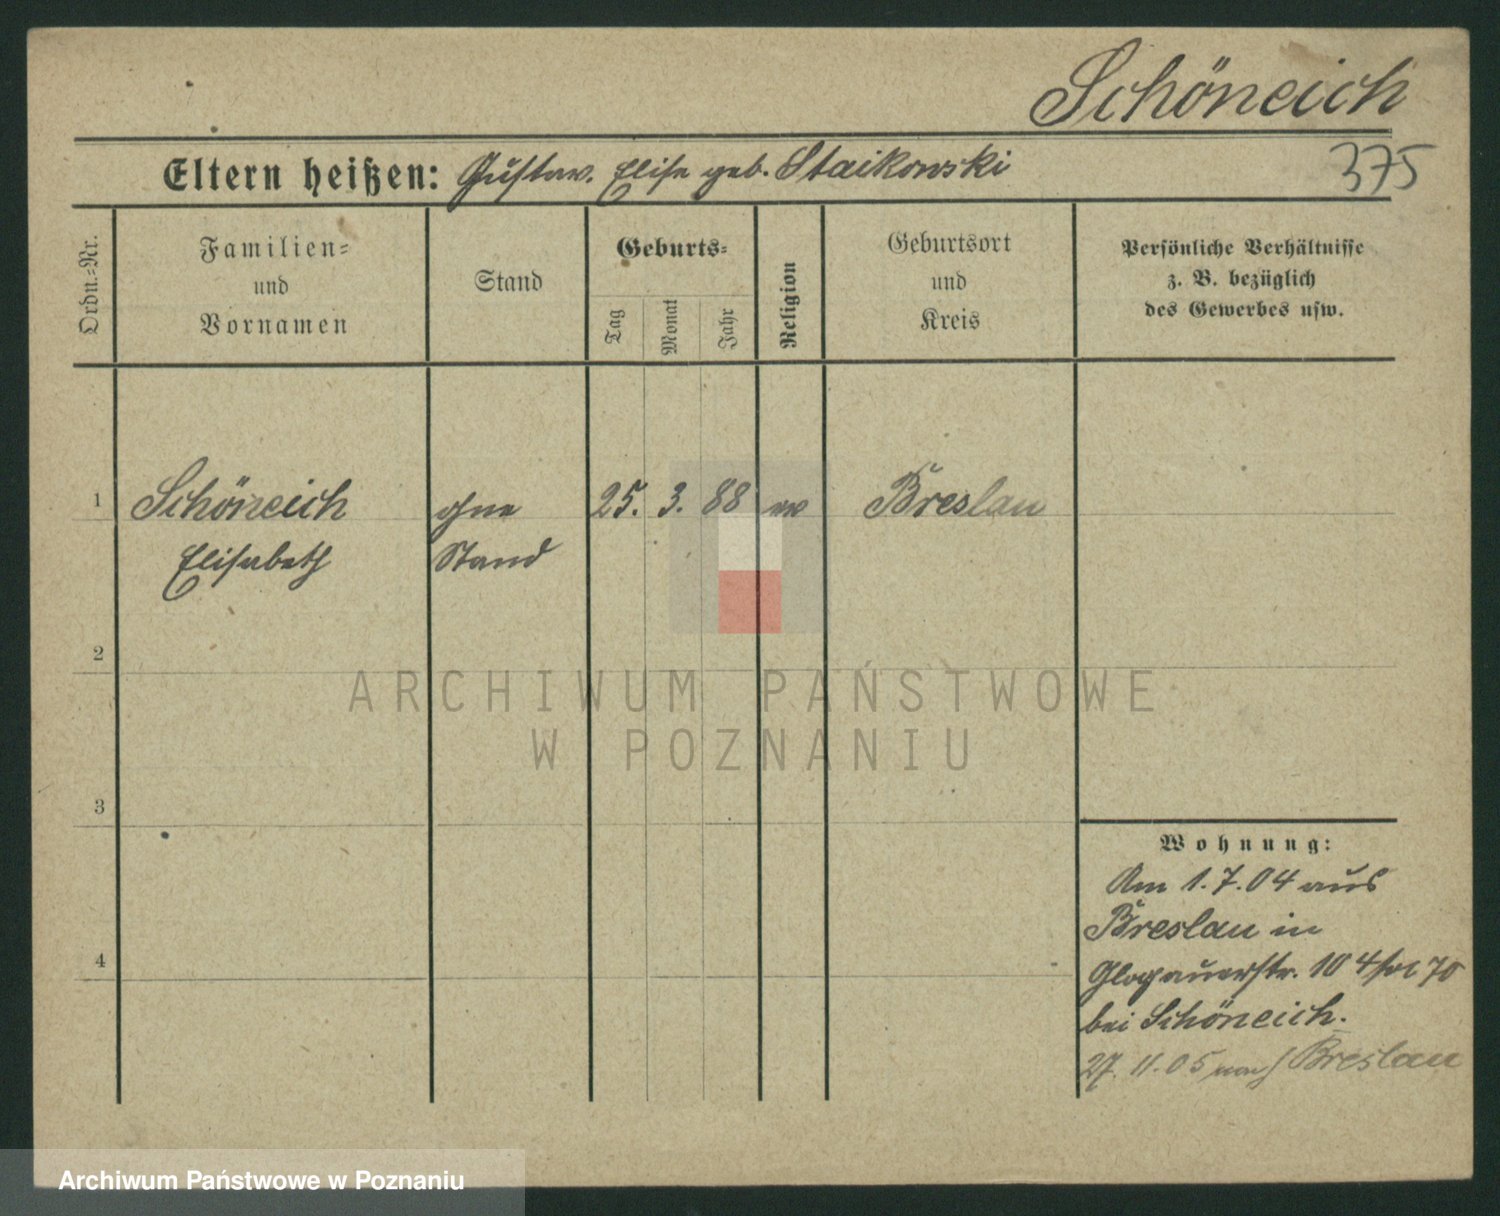 Schöneich
375
Eltern heißen: Gustav. Elise geb. Staikowski
Ordn.-Nr.
Familien- und Vornamen
Stand
Geburts-
Tag
Monat
Jahr
Religion
Geburtsort und Kreis
Persönliche Verhältnisse
z. B. bezüglich
des Gewerbes usw.
1 Schöneich ohne 25. 3. 88 ev Breslau
Elisabeth Stand
2
3
4
Wohnung:
Am 1.7.04 aus
Breslau in
Glogauerstr. 104 70
bei Schöneich.
27.11.05 nach Breslau
ARCHIWUM PAŃSTWOWE
W POZNANIU
Archiwum Państwowe w Poznaniu